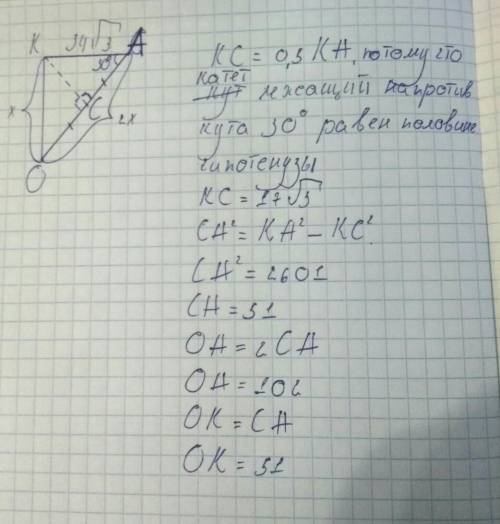 K 34√3 A
30°
x
C
2x
O
KC = 0,5 KA, потому что
катет лежащий напротив
кута 30° равен половине
гипотенузы
KC = 17√3
CA² = KA² – KC²
CA² = 2601
CA = 51
OA = 2 CA
OA = 102
OK = CA
OK = 51